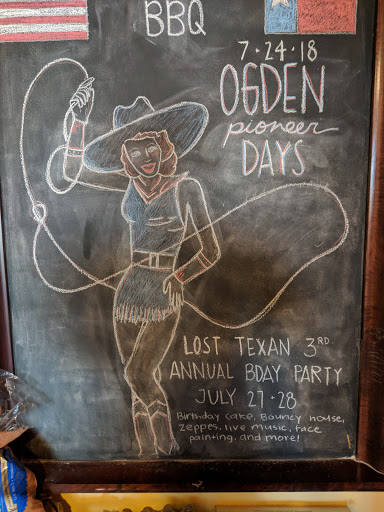 BBQ
7·24·18
OGDEN
pioneer
DAYS
LOST TEXAN 3RD
ANNUAL BDAY PARTY
JULY 27·28
Birthday cake, Bouncy house,
Zeppes, live music, face
painting, and more!